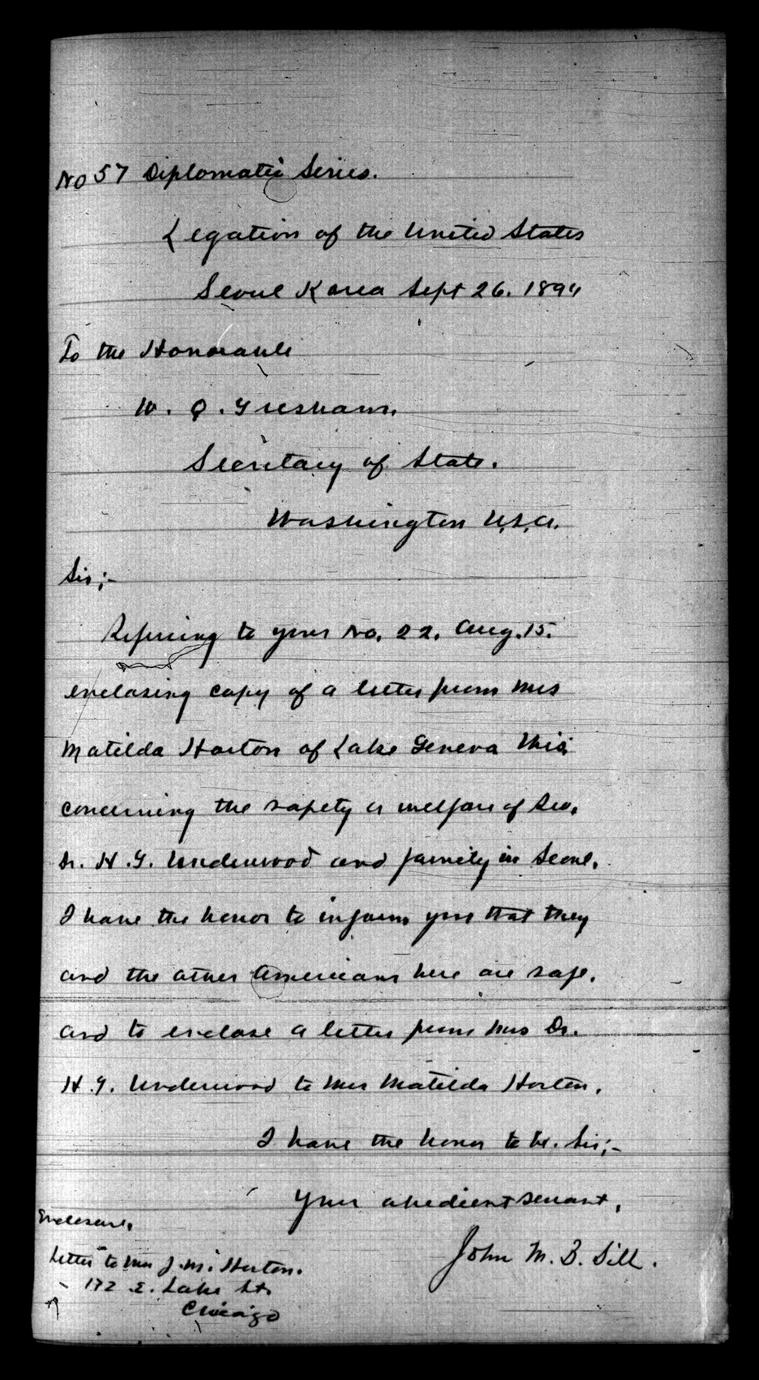 No 57 Diplomatic Series.
Legation of the United States
Seoul Korea Sept 26. 1894
To the Honorable
W. Q. Gresham.
Secretary of State.
Washington U.S.A.
Sir;-
Refering to your No. 22. Aug. 15.
enclosing copy of a letter from Mrs
Matilda Horton of Lake Geneva Wis.
concerning the safety & welfare of Rev.
Dr. H. G. Underwood and family in Seoul.
I have the honor to inform you that they
and the other Americans here are safe.
and to enclose a letter from Mrs Dr.
H. G. Underwood to Mrs Matilda Horton.
I have the honor to be. Sir;-
Your obedient servant,
John M. B. Sill.
Enclosure.
Letter to Mrs J. M. Horton.
172 E. Lake St.
Chicago